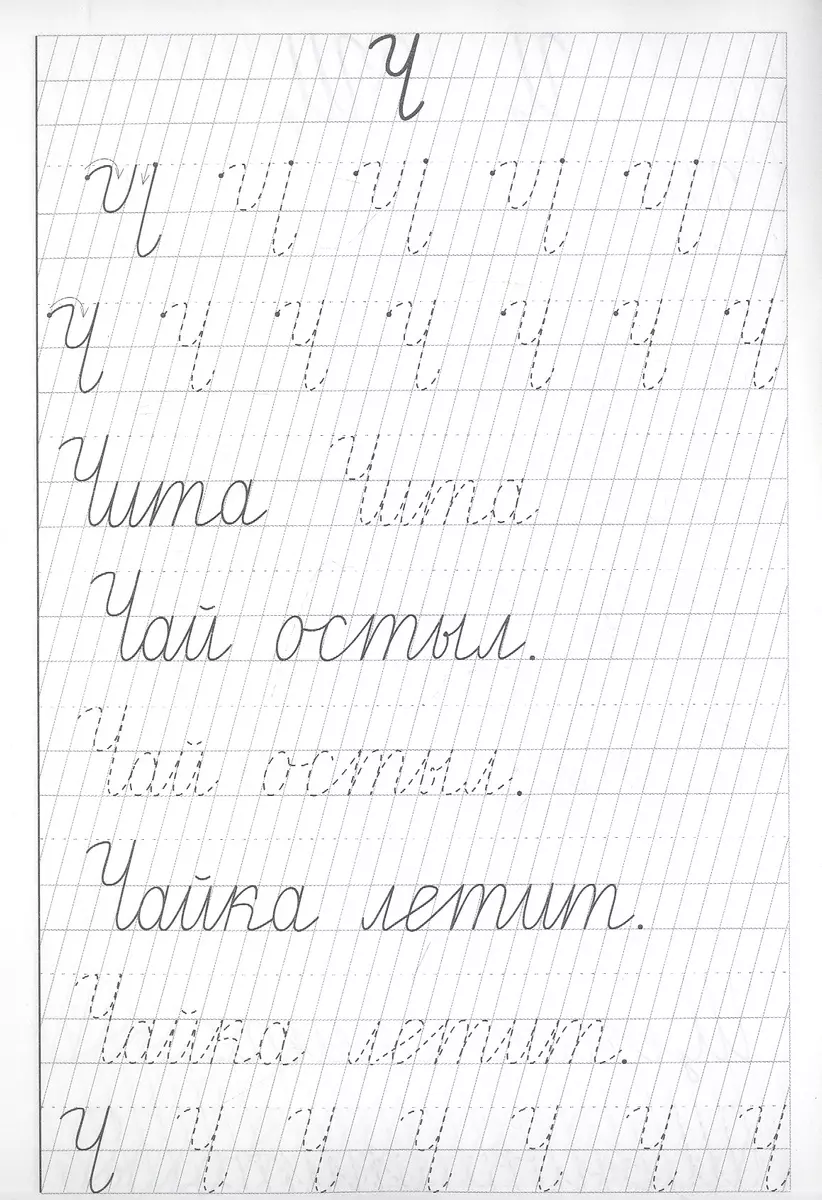 Ч
Ч Ч Ч Ч Ч
Ч Ч Ч Ч Ч Ч Ч
Чита Чита
Чай остыл.
Чай остыл.
Чайка летит.
Чайка летит.
Ч Ч Ч Ч Ч Ч Ч